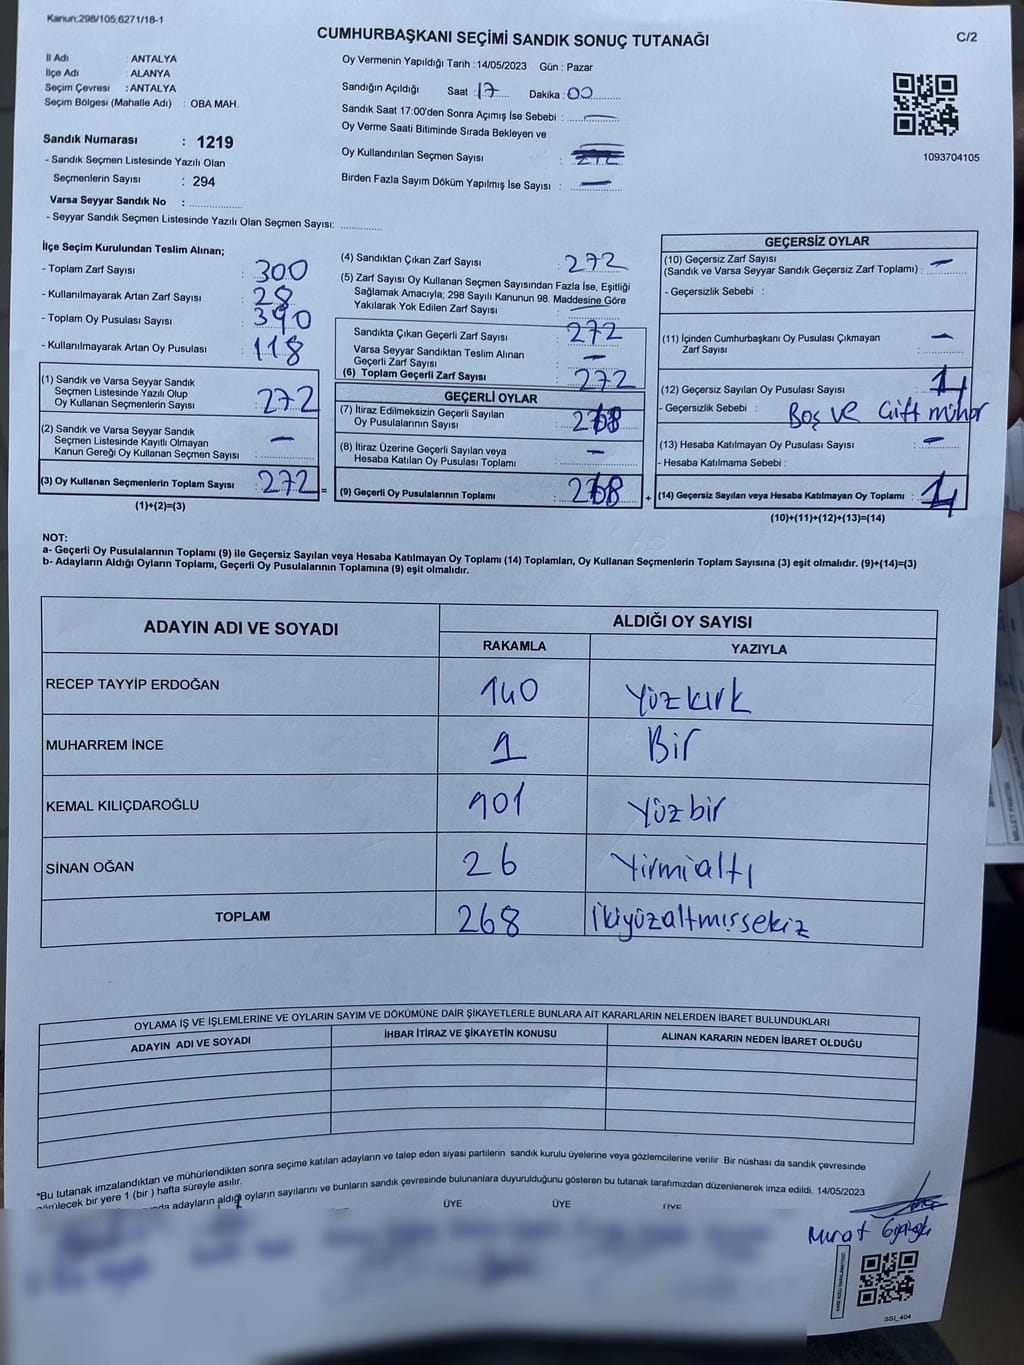 Kanun:298/105,6271/18-1
CUMHURBAŞKANI SEÇİMİ SANDIK SONUÇ TUTANAĞI
C/2
İl Adı : ANTALYA
İlçe Adı : ALANYA
Seçim Çevresi : ANTALYA
Seçim Bölgesi (Mahalle Adı) : OBA MAH.
Sandık Numarası : 1219
- Sandık Seçmen Listesinde Yazılı Olan
Seçmenlerin Sayısı : 294
Varsa Seyyar Sandık No : ..............
- Seyyar Sandık Seçmen Listesinde Yazılı Olan Seçmen Sayısı: ............
Oy Vermenin Yapıldığı Tarih : 14/05/2023 Gün : Pazar
Sandığın Açıldığı Saat : 17 Dakika : 00
Sandık Saat 17:00'den Sonra Açımış İse Sebebi : —
Oy Verme Saati Bitiminde Sırada Bekleyen ve
Oy Kullandırılan Seçmen Sayısı :
Birden Fazla Sayım Döküm Yapılmış İse Sayısı : —
1093704105
İlçe Seçim Kurulundan Teslim Alınan;
- Toplam Zarf Sayısı : 300
- Kullanılmayarak Artan Zarf Sayısı : 28
- Toplam Oy Pusulası Sayısı : 390
- Kullanılmayarak Artan Oy Pusulası : 118
(1) Sandık ve Varsa Seyyar Sandık
Seçmen Listesinde Yazılı Olup
Oy Kullanan Seçmenlerin Sayısı : 272
(2) Sandık ve Varsa Seyyar Sandık
Seçmen Listesinde Kayıtlı Olmayan
Kanun Gereği Oy Kullanan Seçmen Sayısı : —
(3) Oy Kullanan Seçmenlerin Toplam Sayısı : 272 =
(1)+(2)=(3)
(4) Sandıktan Çıkan Zarf Sayısı : 272
(5) Zarf Sayısı Oy Kullanan Seçmen Sayısından Fazla İse, Eşitliği
Sağlamak Amacıyla; 298 Sayılı Kanunun 98. Maddesine Göre
Yakılarak Yok Edilen Zarf Sayısı : —
Sandıkta Çıkan Geçerli Zarf Sayısı : 272
Varsa Seyyar Sandıktan Teslim Alınan
Geçerli Zarf Sayısı : —
(6) Toplam Geçerli Zarf Sayısı : 272
GEÇERLİ OYLAR
(7) İtiraz Edilmeksizin Geçerli Sayılan
Oy Pusulasının Sayısı : 268
(8) İtiraz Üzerine Geçerli Sayılan veya
Hesaba Katılan Oy Pusulası Toplamı : —
(9) Geçerli Oy Pusulalarının Toplamı : 268 +
GEÇERSİZ OYLAR
(10) Geçersiz Zarf Sayısı
(Sandık ve Varsa Seyyar Sandık Geçersiz Zarf Toplamı) : —
- Geçersizlik Sebebi :
(11) İçinden Cumhurbaşkanı Oy Pusulası Çıkmayan
Zarf Sayısı : —
(12) Geçersiz Sayılan Oy Pusulası Sayısı : 4
- Geçersizlik Sebebi : Boş ve Çift mühür
(13) Hesaba Katılmayan Oy Pusulası Sayısı : —
- Hesaba Katılmama Sebebi :
(14) Geçersiz Sayılan veya Hesaba Katılmayan Oy Toplamı : 4
(10)+(11)+(12)+(13)=(14)
NOT:
a- Geçerli Oy Pusulalarının Toplamı (9) ile Geçersiz Sayılan veya Hesaba Katılmayan Oy Toplamı (14) Toplamları, Oy Kullanan Seçmenlerin Toplam Sayısına (3) eşit olmalıdır. (9)+(14)=(3)
b- Adayların Aldığı Oyların Toplamı, Geçerli Oy Pusulalarının Toplamına (9) eşit olmalıdır.
ADAYIN ADI VE SOYADI
ALDIĞI OY SAYISI
RAKAMLA YAZIYLA
RECEP TAYYİP ERDOĞAN 140 Yüzkırk
MUHARREM İNCE 1 Bir
KEMAL KILIÇDAROĞLU 101 Yüzbir
SİNAN OĞAN 26 Yirmialtı
TOPLAM 268 İkiyüzaltmışsekiz
OYLAMA İŞ VE İŞLEMLERİNE VE OYLARIN SAYIM VE DÖKÜMÜNE DAİR ŞİKAYETLERLE BUNLARA AİT KARARLARIN NELERDEN İBARET BULUNDUKLARI
ADAYIN ADI VE SOYADI İHBAR İTİRAZ VE ŞİKAYETİN KONUSU ALINAN KARARIN NEDEN İBARET OLDUĞU
*Bu tutanak imzalandıktan ve mühürlendikten sonra seçime katılan adayların ve talep eden siyasi partilerin sandık kurulu üyelerine veya gözlemcilerine verilir .Bir nüshası da sandık çevresinde
görülecek bir yere 1 (bir ) hafta süreyle asılır.
adayların aldığı oyların sayılarını ve bunların sandık çevresinde bulunanlara duyurulduğunu gösteren bu tutanak tarafımızdan düzenlenerek imza edildi. 14/05/2023
ÜYE ÜYE ÜYE
Murat
SSİ_404